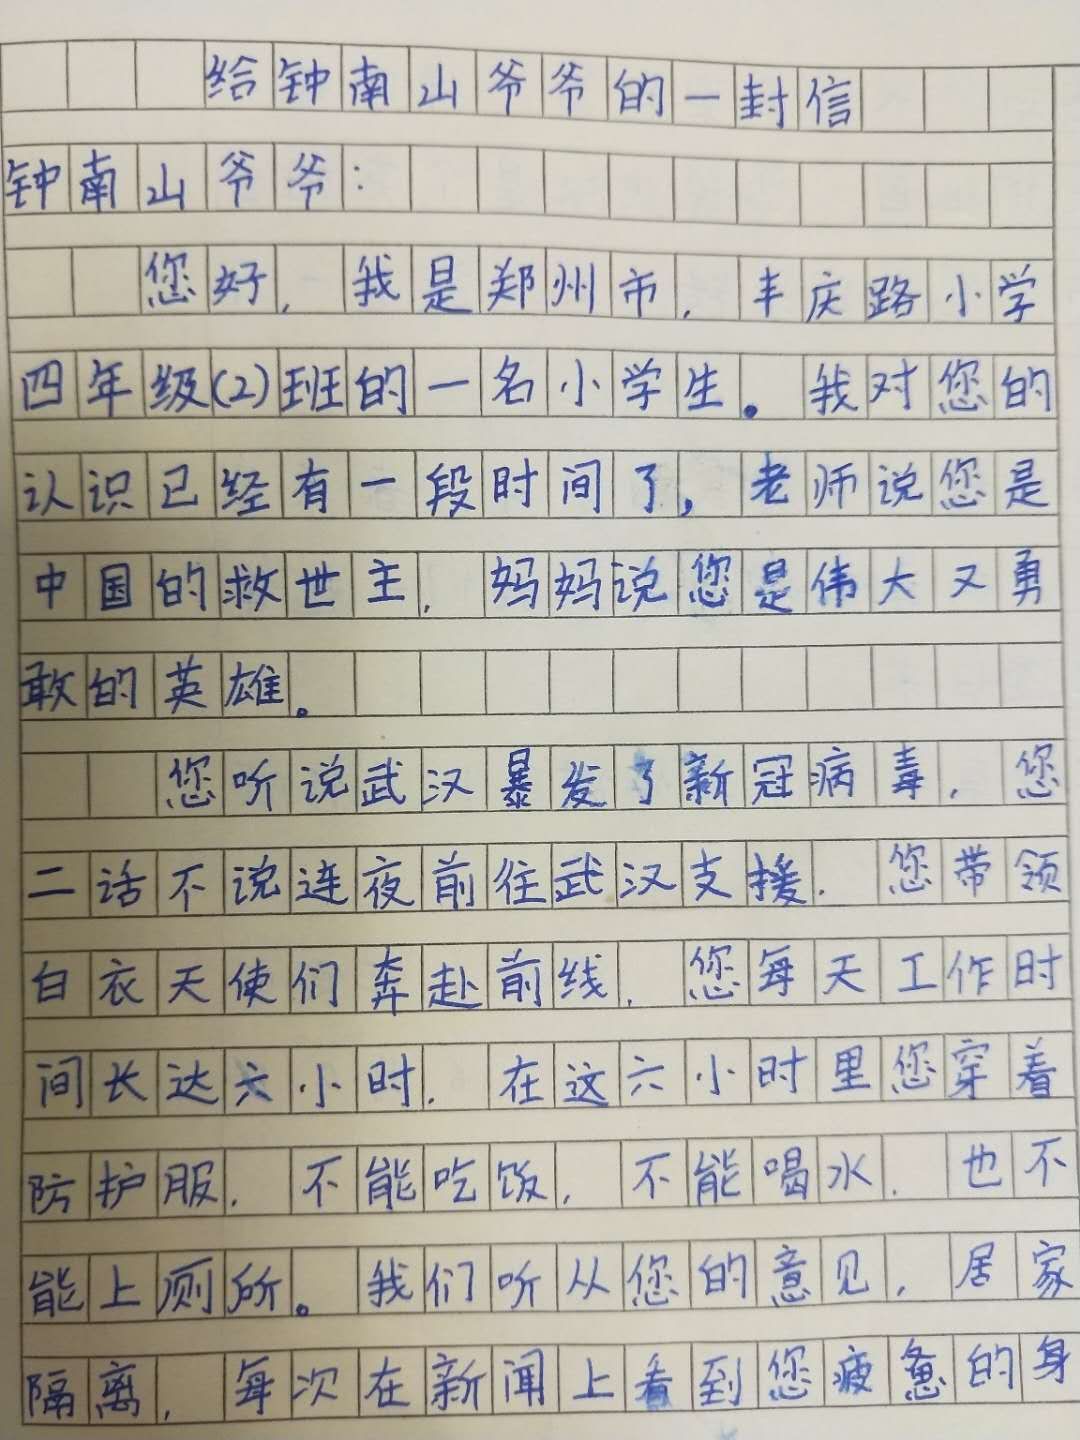 给钟南山爷爷的一封信
钟南山爷爷：
您好，我是郑州市，丰庆路小学
四年级(2)班的一名小学生。我对您的
认识已经有一段时间了，老师说您是
中国的救世主，妈妈说您是伟大又勇
敢的英雄。
您听说武汉暴发了新冠病毒，您
二话不说连夜前往武汉支援，您带领
白衣天使们奔赴前线，您每天工作时
间长达六小时，在这六小时里您穿着
防护服，不能吃饭，不能喝水，也不
能上厕所。我们听从您的意见，居家
隔离，每次在新闻上看到您疲惫的身